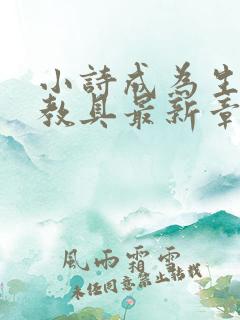 小詩成為生
教具最新章
風雨霜雪
未經同意禁止轉載